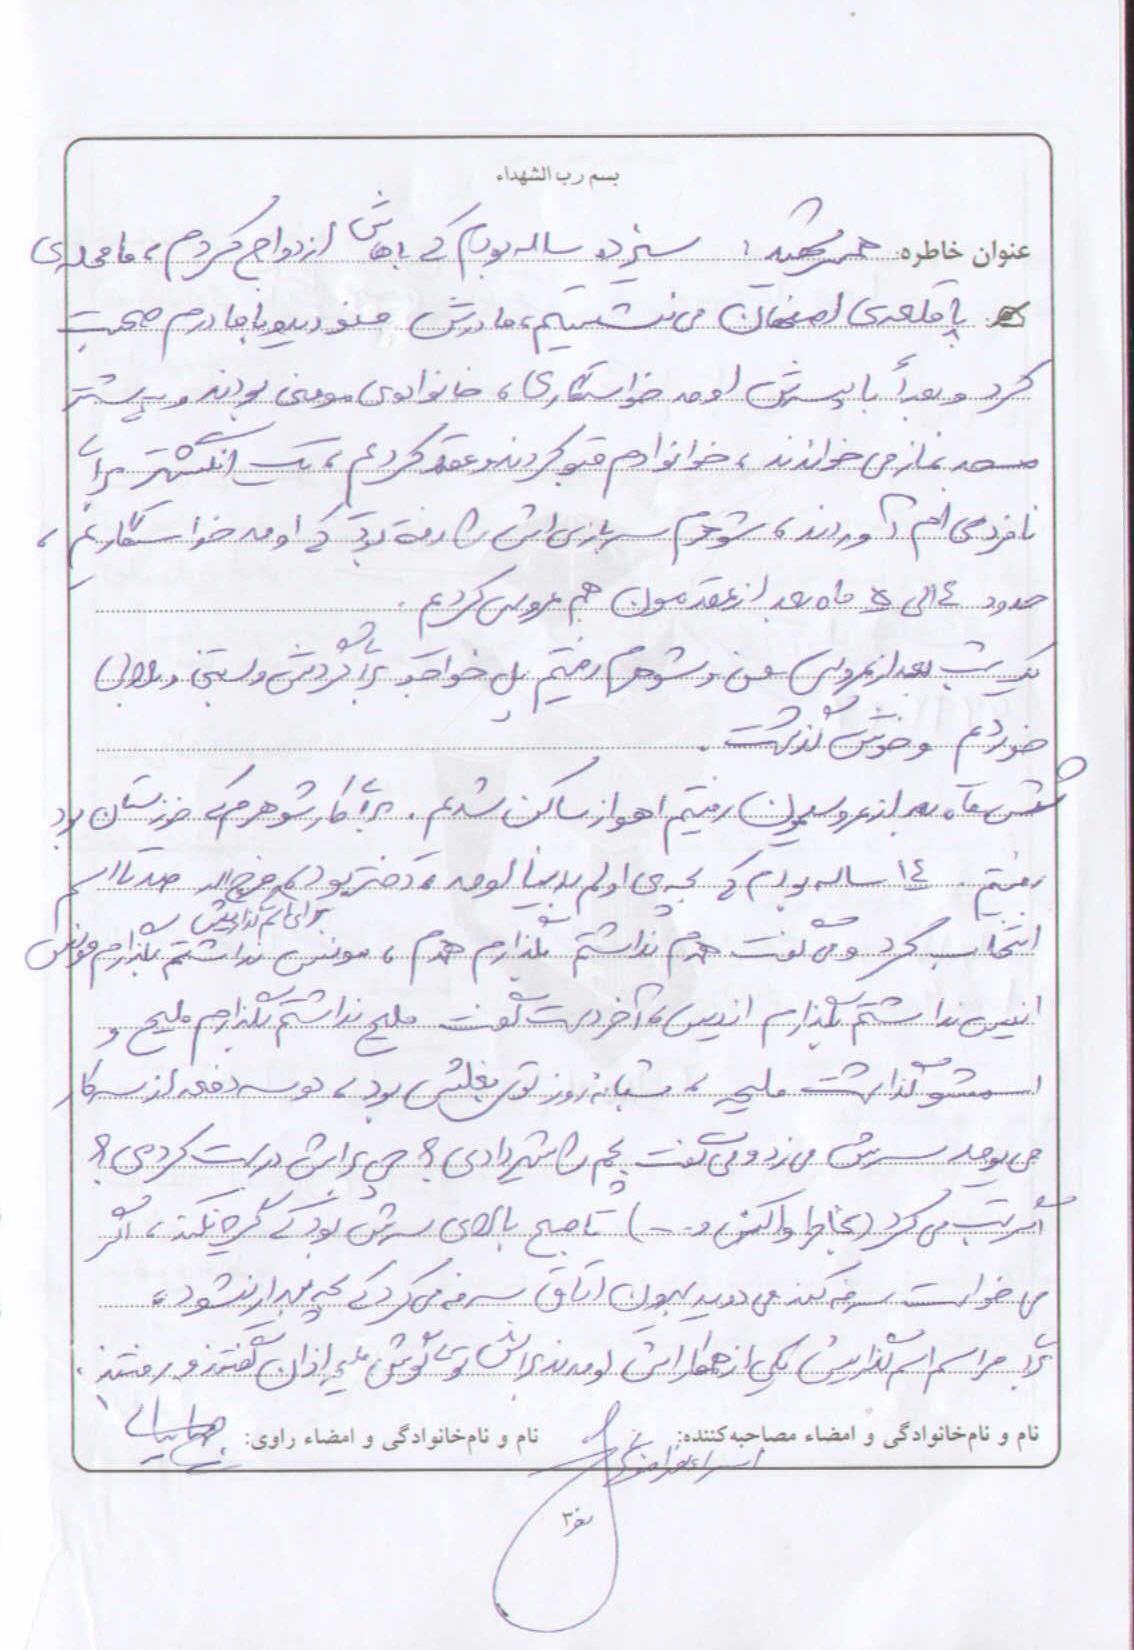 بسم رب الشهداء
عنوان خاطره: همسر شهید: سیزده ساله بودم که باهاش ازدواج کردم، ما محله‌ی
پاقلعه‌ی اصفهان می‌نشستیم، مادرش منو دید و با مادرم صحبت
کرد و بعداً با پسرش اومد خواستگاری، خانواده‌ی مومنی بودند و بیشتر
مسجد نماز می‌خواندند، خوانوادم قبول کردند و عقد کردیم، یک انگشتر برای
نامزدی ام آوردند، شوهرم سربازی‌اش را رفته بود که اومد خواستگاریم،
حدود ٤ الی ۵ ماه بعد از عقدمون هم عروسی کردیم.
یک شب بعد از عروسی من و شوهرم رفتیم پل خواجو برای گردش و بستنی و بلالی
خوردیم و خوش گذشت.
شش ماه بعد از عروسیمون رفتیم اهواز ساکن شدیم. برای کار شوهرم که خوزستان بود
رفتیم. ١٤ ساله بودم که بچه‌ی اولم بدنیا اومد، دختر بود، فرج الله صد تا اسم
برای اسم گذاریش
انتخاب کرد و می گفت همدم نداشتم بگذارم همدم، مونس نداشتم بگذارم مونس
انیس نداشتم بگذارم انیس، آخر دست گفت ملیح نداشتم بگذارم ملیح و
اسمشو گذاشت ملیحه، شبانه روز توی بغلش بود، دو سه دفعه از سر کار
می‌یومد سرش می‌زد و می گفت بچم را شیر دادی؟ چی برایش درست کردی؟
اگر تب می کرد (بخاطر واکسن و ...) تا صبح بالای سرش بود که گریه نکند، اگر
می خواست سرفه کند می دوید بیرون اتاق سرفه می کرد که بچه بیدار نشود،
برای مراسم اسم گذاریش یکی از همکاراش اومدند برایش توی گوش ملیحه اذان گفتند و رفتند.
نام و نام‌خانوادگی و امضاء مصاحبه‌کننده:
نام و نام‌خانوادگی و امضاء راوی: